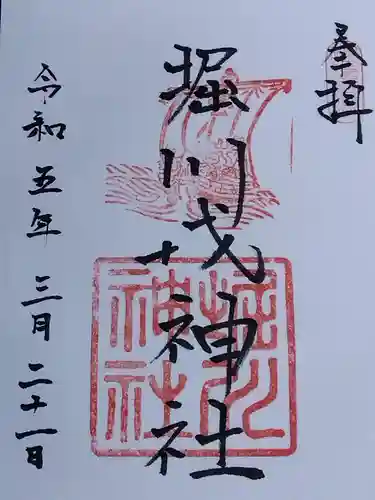 奉拝
堀川戎神社
堀川
神社
令和五年 三月 二十一日